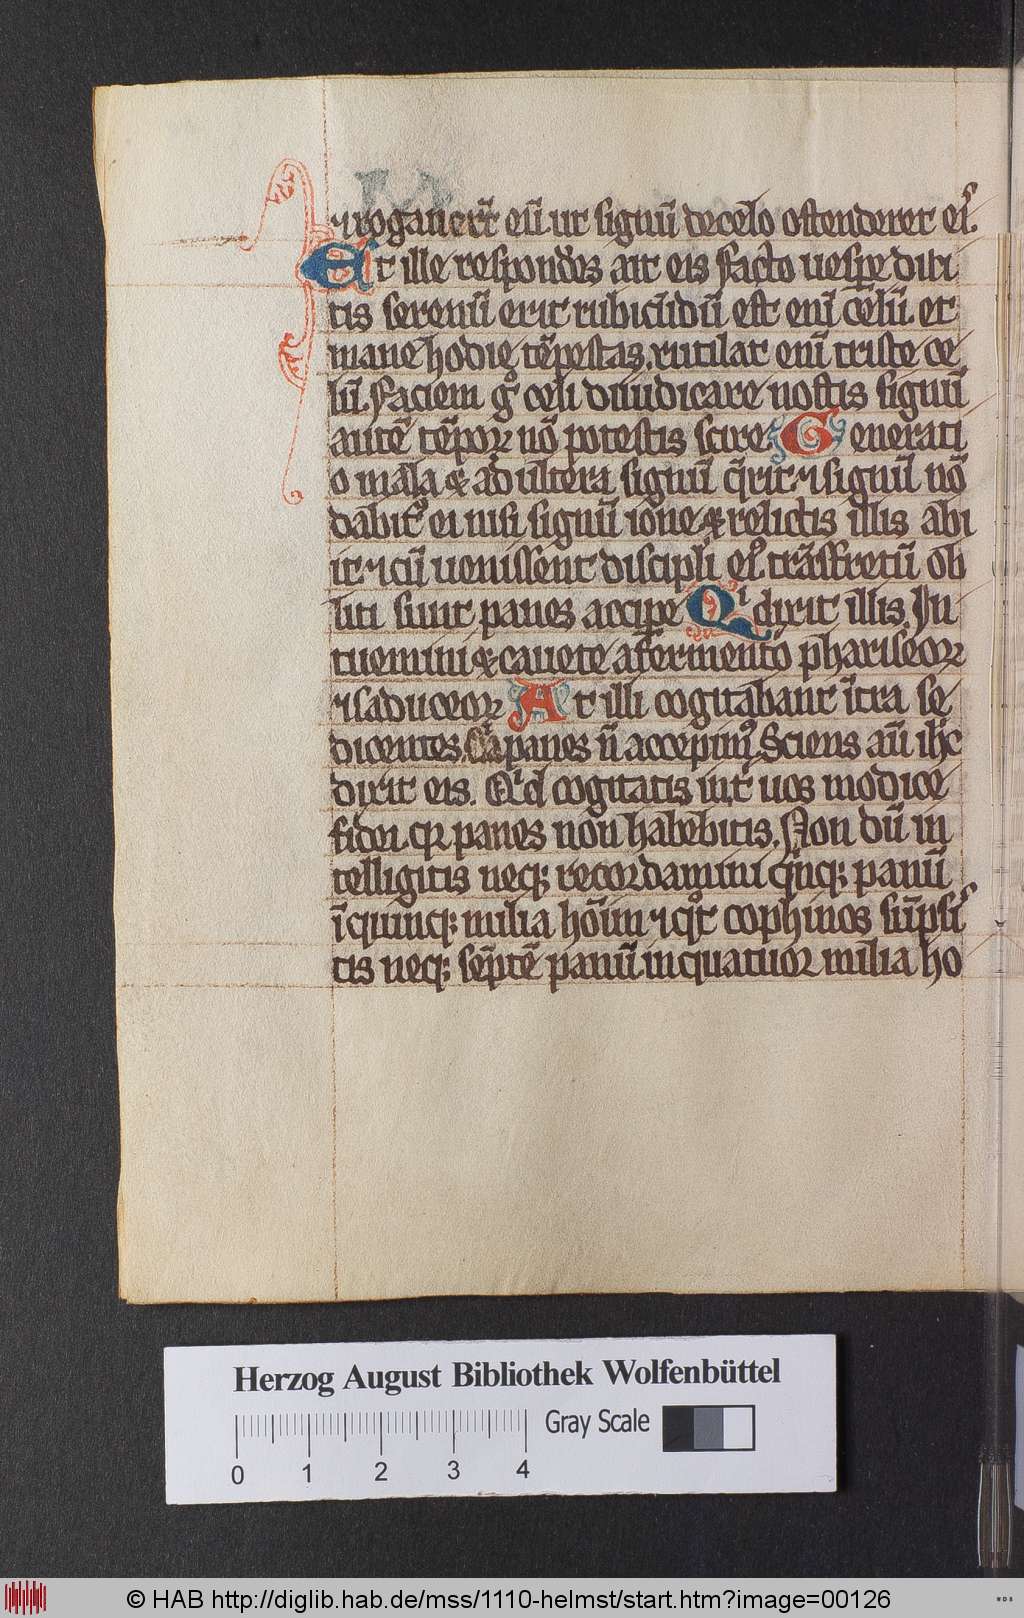 ⁊ rogauer̄t eū ut signū de celo ostenderet eis.
Et ille respondēs ait eis facto uespe diti
tis serenū erit rubicūdū est enī celū et
mane hodie tēpestas. rutilat enī triste ce
lū. faciem gͦ celi diiudicare nostis signū
autē tēpoꝝ nō potestis scire. Generati
o mala & adultera signū q̄rit. ⁊ signū nō
dabitᷣ ei nisi signū ione & relictis illis abi
it ⁊ cū uenissent discipli eiꝰ trāsfretū ob
liti sunt panes accipe Qͥ dixit illis. In
tuemini & cauete a fermento phariseoꝝ
⁊ saduceoꝝ At illi cogitabant īt̄ra se
dicentes. Qͣ panes n̄ accepimꝰ. Sciens aū ih̄c
dixit eis. Qͥd cogitatis int̄ uos modice
fidei. qꝛ panes non habebitis. Non dū in
telligitis neqꝫ recordamini q̄nqꝫ panū
ī quinqꝫ milia hōīm ⁊ qͦt cophinos sūpsi
tis neqꝫ septē panū in quatuor milia ho
Herzog August Bibliothek Wolfenbüttel
Gray Scale
0 1 2 3 4
© HAB http://diglib.hab.de/mss/1110-helmst/start.htm?image=00126